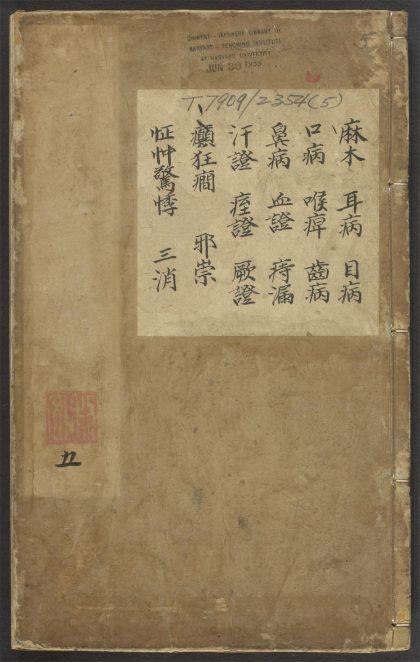 CHINESE - JAPANESE LIBRARY OF
HARVARD - YENCHING INSTITUTE
AT HARVARD UNIVERSITY
JUN 30 1955
5
T7909/2354(5)
麻木 耳病 目病
口病 喉痺 齒病
鼻病 血證 痔漏
汗證 痓證 厥證
癲狂癎 邪祟
怔忡驚悸 三消
五